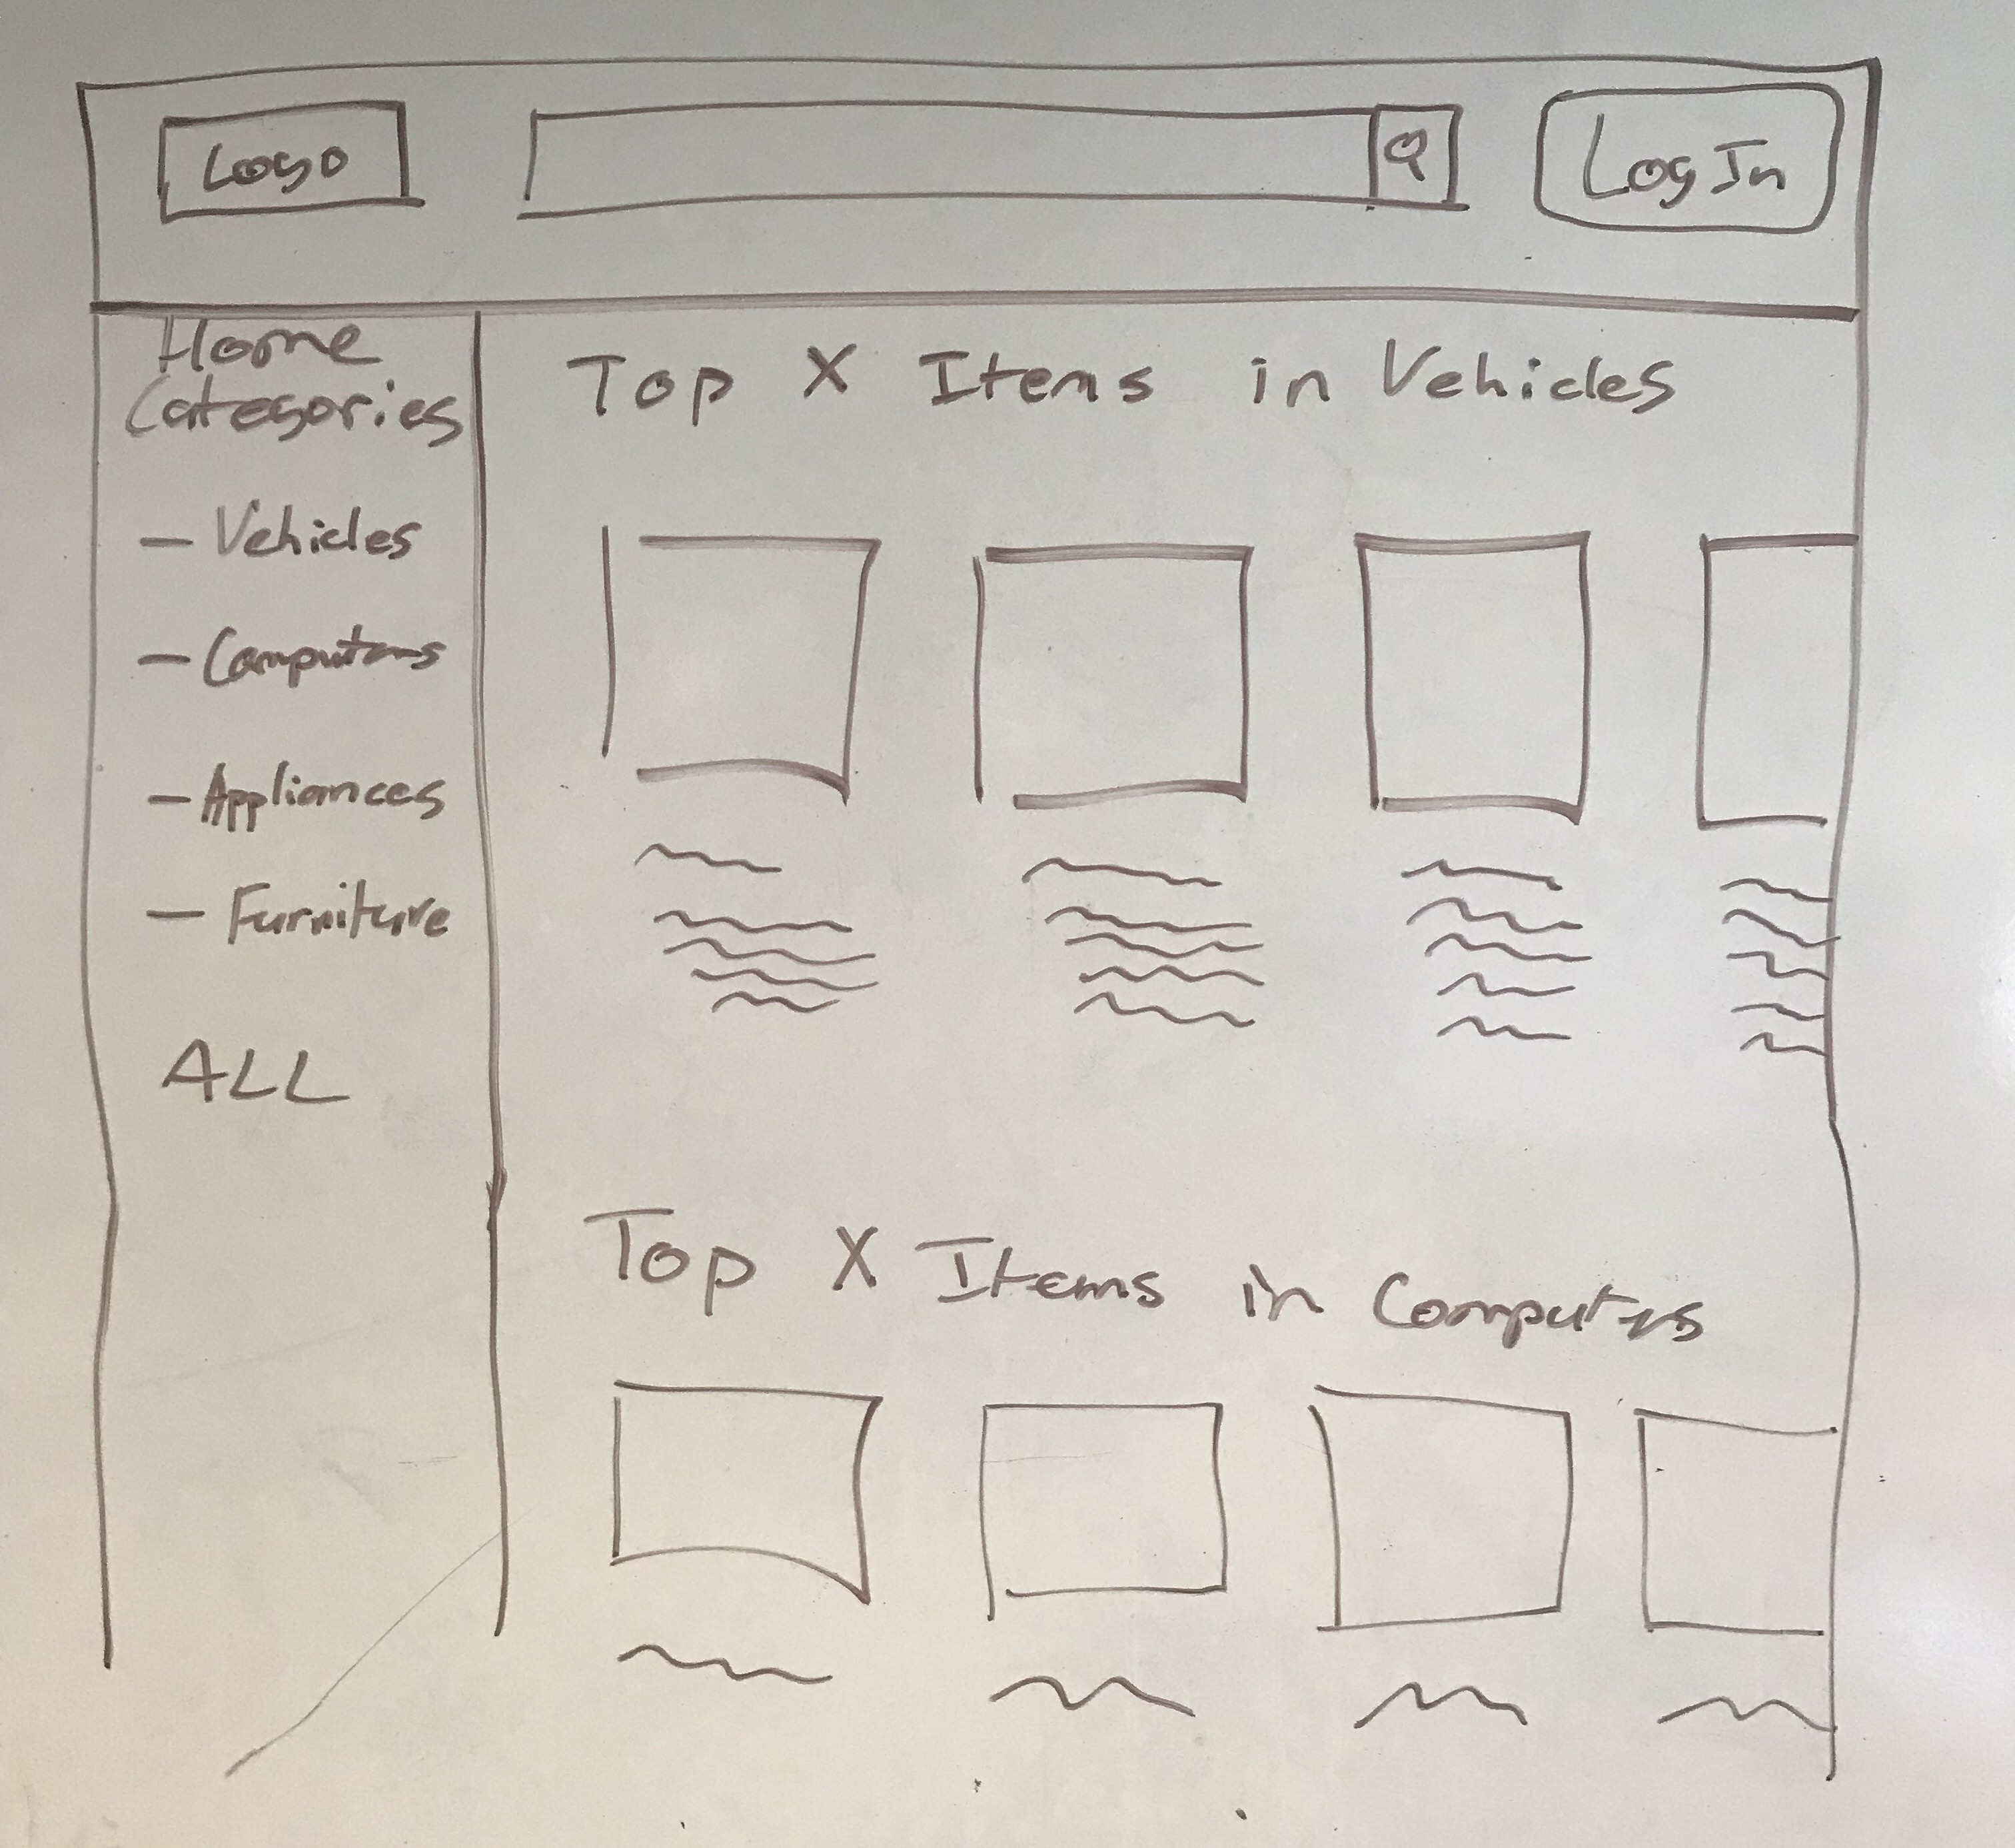 Logo
Log In
Home
Categories
- Vehicles
- Computers
- Appliances
- Furniture
ALL
Top X Items in Vehicles
Top X Items in Computers